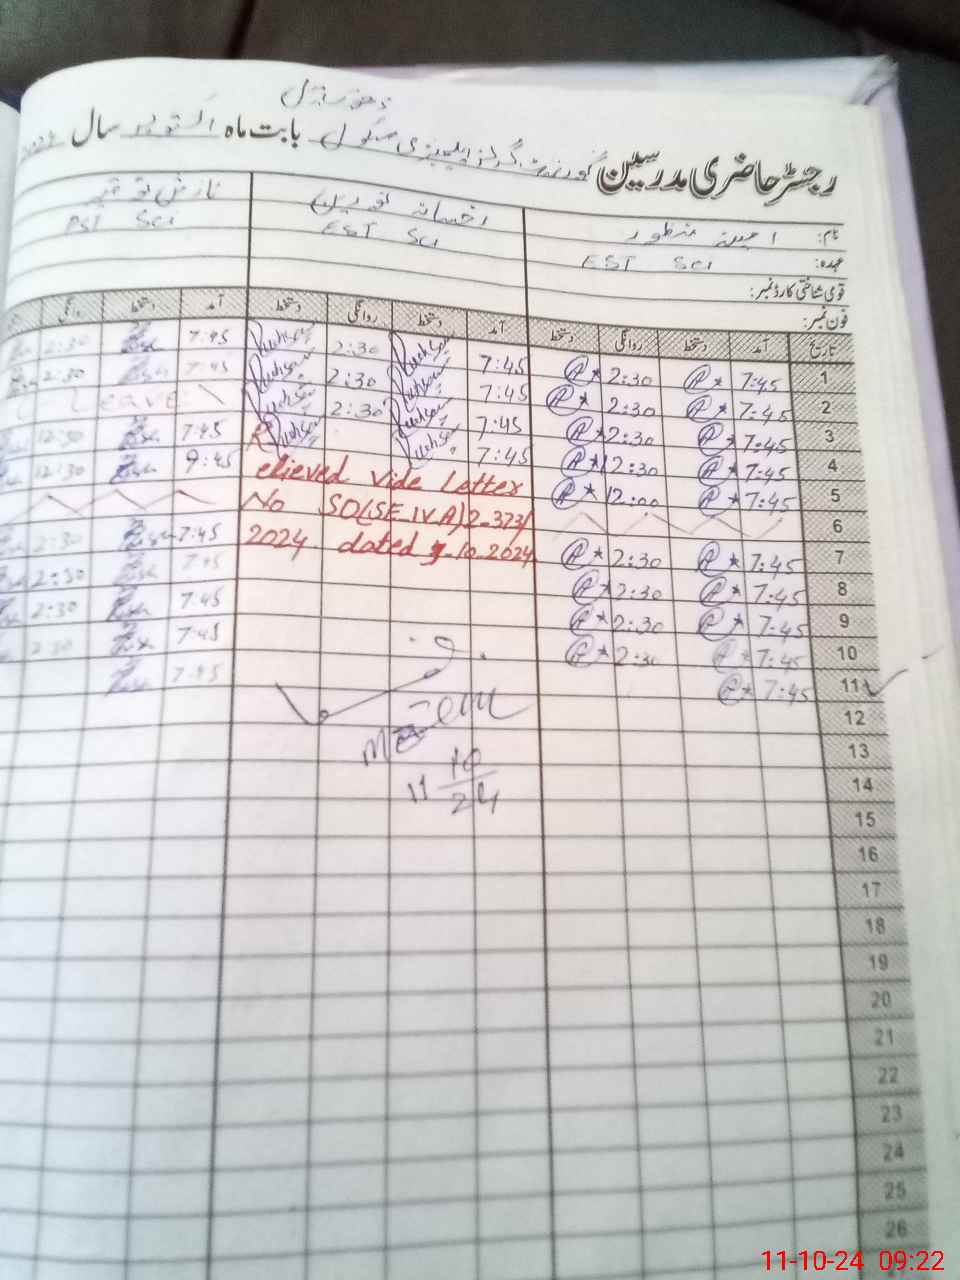 رجسٹر حاضری مدرسین گورنمنٹ گرلز ایلیمنٹری سکول بابت ماہ اکتوبر سال
نام: امینہ منظور رخسانہ نورین
عہدہ: EST Sci EST Sci PST Sci
قومی شناختی کارڈ نمبر:
فون نمبر:
تاریخ آمد دستخط روانگی دستخط آمد دستخط روانگی دستخط آمد دستخط روانگی
1 7:45 2:30 7:45 2:30 7:45 2:30
2 7:45 2:30 7:45 2:30 7:45 2:30
3 7:45 2:30 7:45 2:30 Leave
4 7:45 12:30 7:45 7:45 12:30
5 7:45 12:00 9:45 12:30
6
7 7:45 2:30 7:45 2:30
8 7:45 2:30 7:45 2:30
9 7:45 2:30 7:45 2:30
10 7:45 2:30 7:45 2:30
11 7:45 7:45
Relieved Vide Letter
No SO(SE-IV-A)2-373/
2024 dated -10-2024
11 10/24
12
13
14
15
16
17
18
19
20
21
22
23
24
25
26
11-10-24 09:22